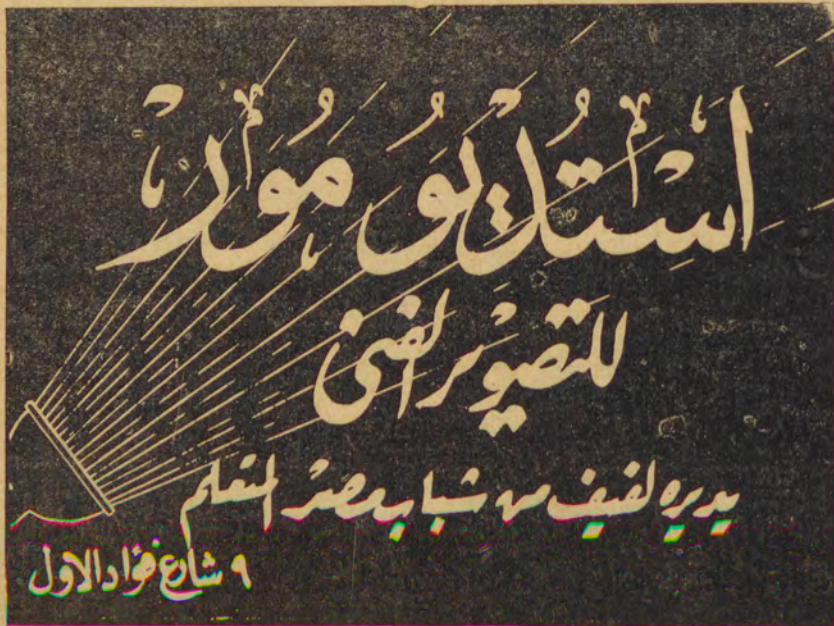 استديو مور
للتصوير الفنى
يديره لفيف من شباب مصر المتعلم
٩ شارع فؤاد الاول